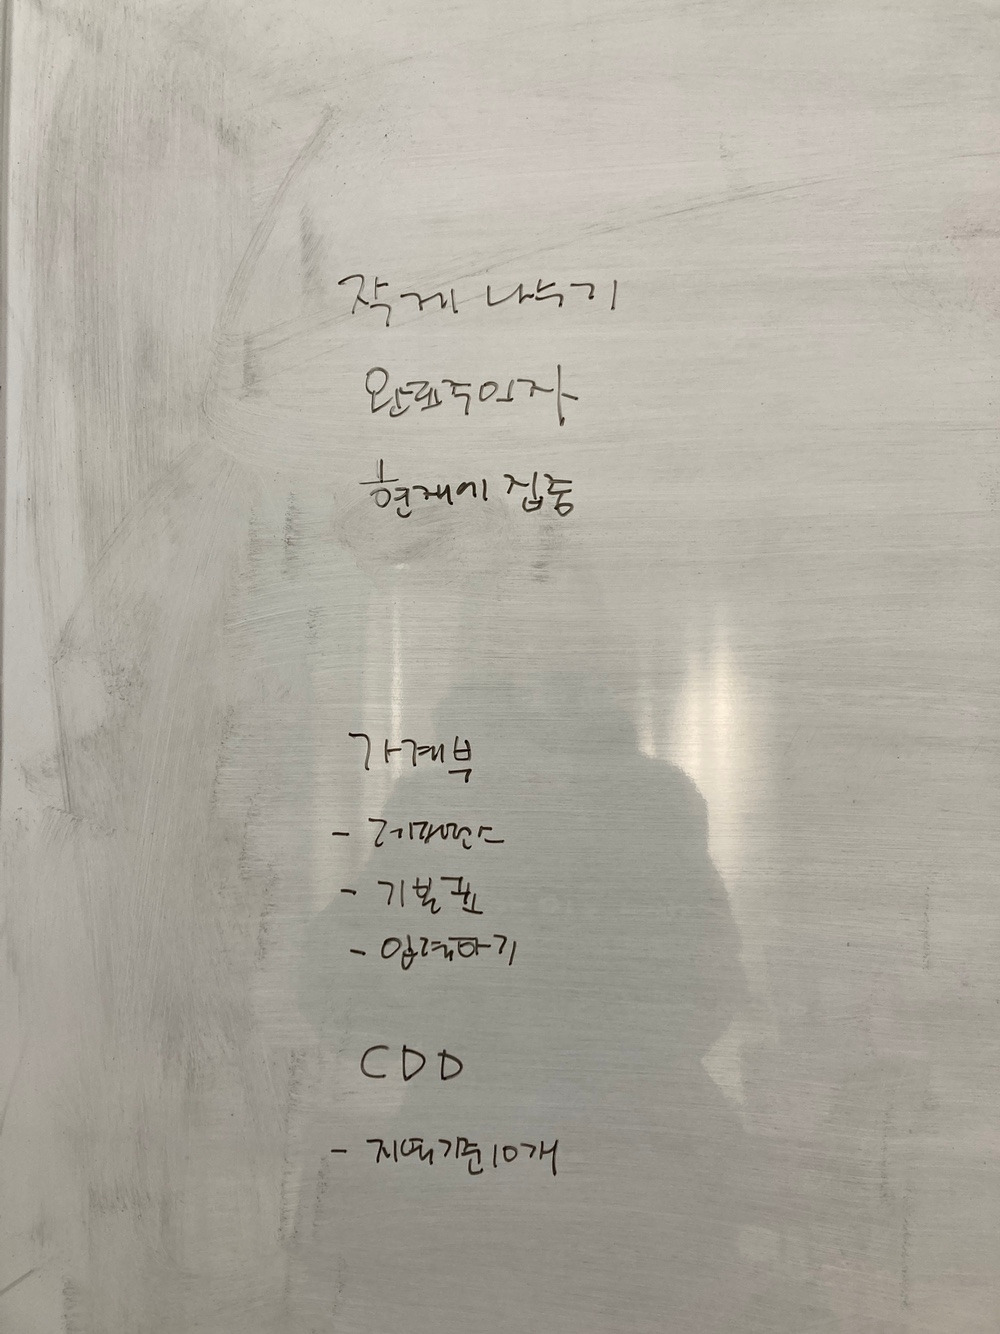 작게 나누기
완료주의자
현재에 집중
가계부
- 레퍼런스
- 기본 표
- 입력하기
CDD
- 지역기준10개